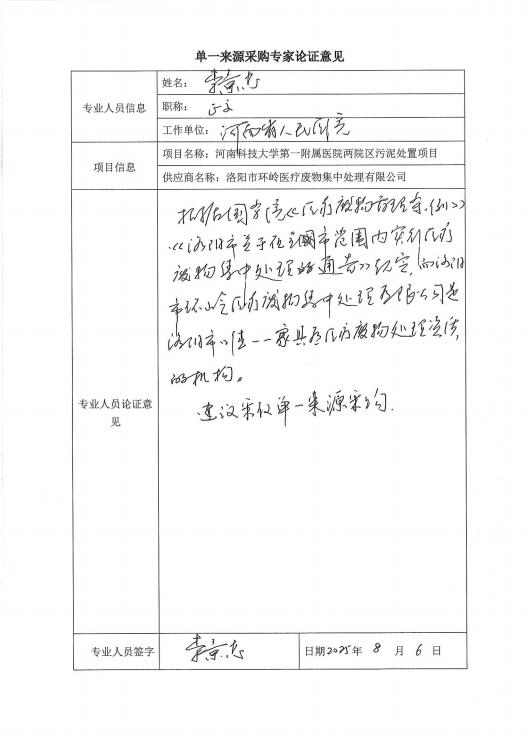 单一来源采购专家论证意见
专业人员信息
姓名：
职称：
工作单位：河南省人民医院
项目信息
项目名称：河南科技大学第一附属医院两院区污泥处置项目
供应商名称：洛阳市环岭医疗废物集中处理有限公司
专业人员论证意见
根据国家院《医疗废物管理条例》
《洛阳市关于在全市范围内实行医疗
废物集中处理的通告》规定，而洛阳
市环岭医疗废物集中处理有限公司是
洛阳市唯一一家具有医疗废物处理资质
的机构。
建议采取单一来源采购.
专业人员签字
日期2025年 8 月 6 日